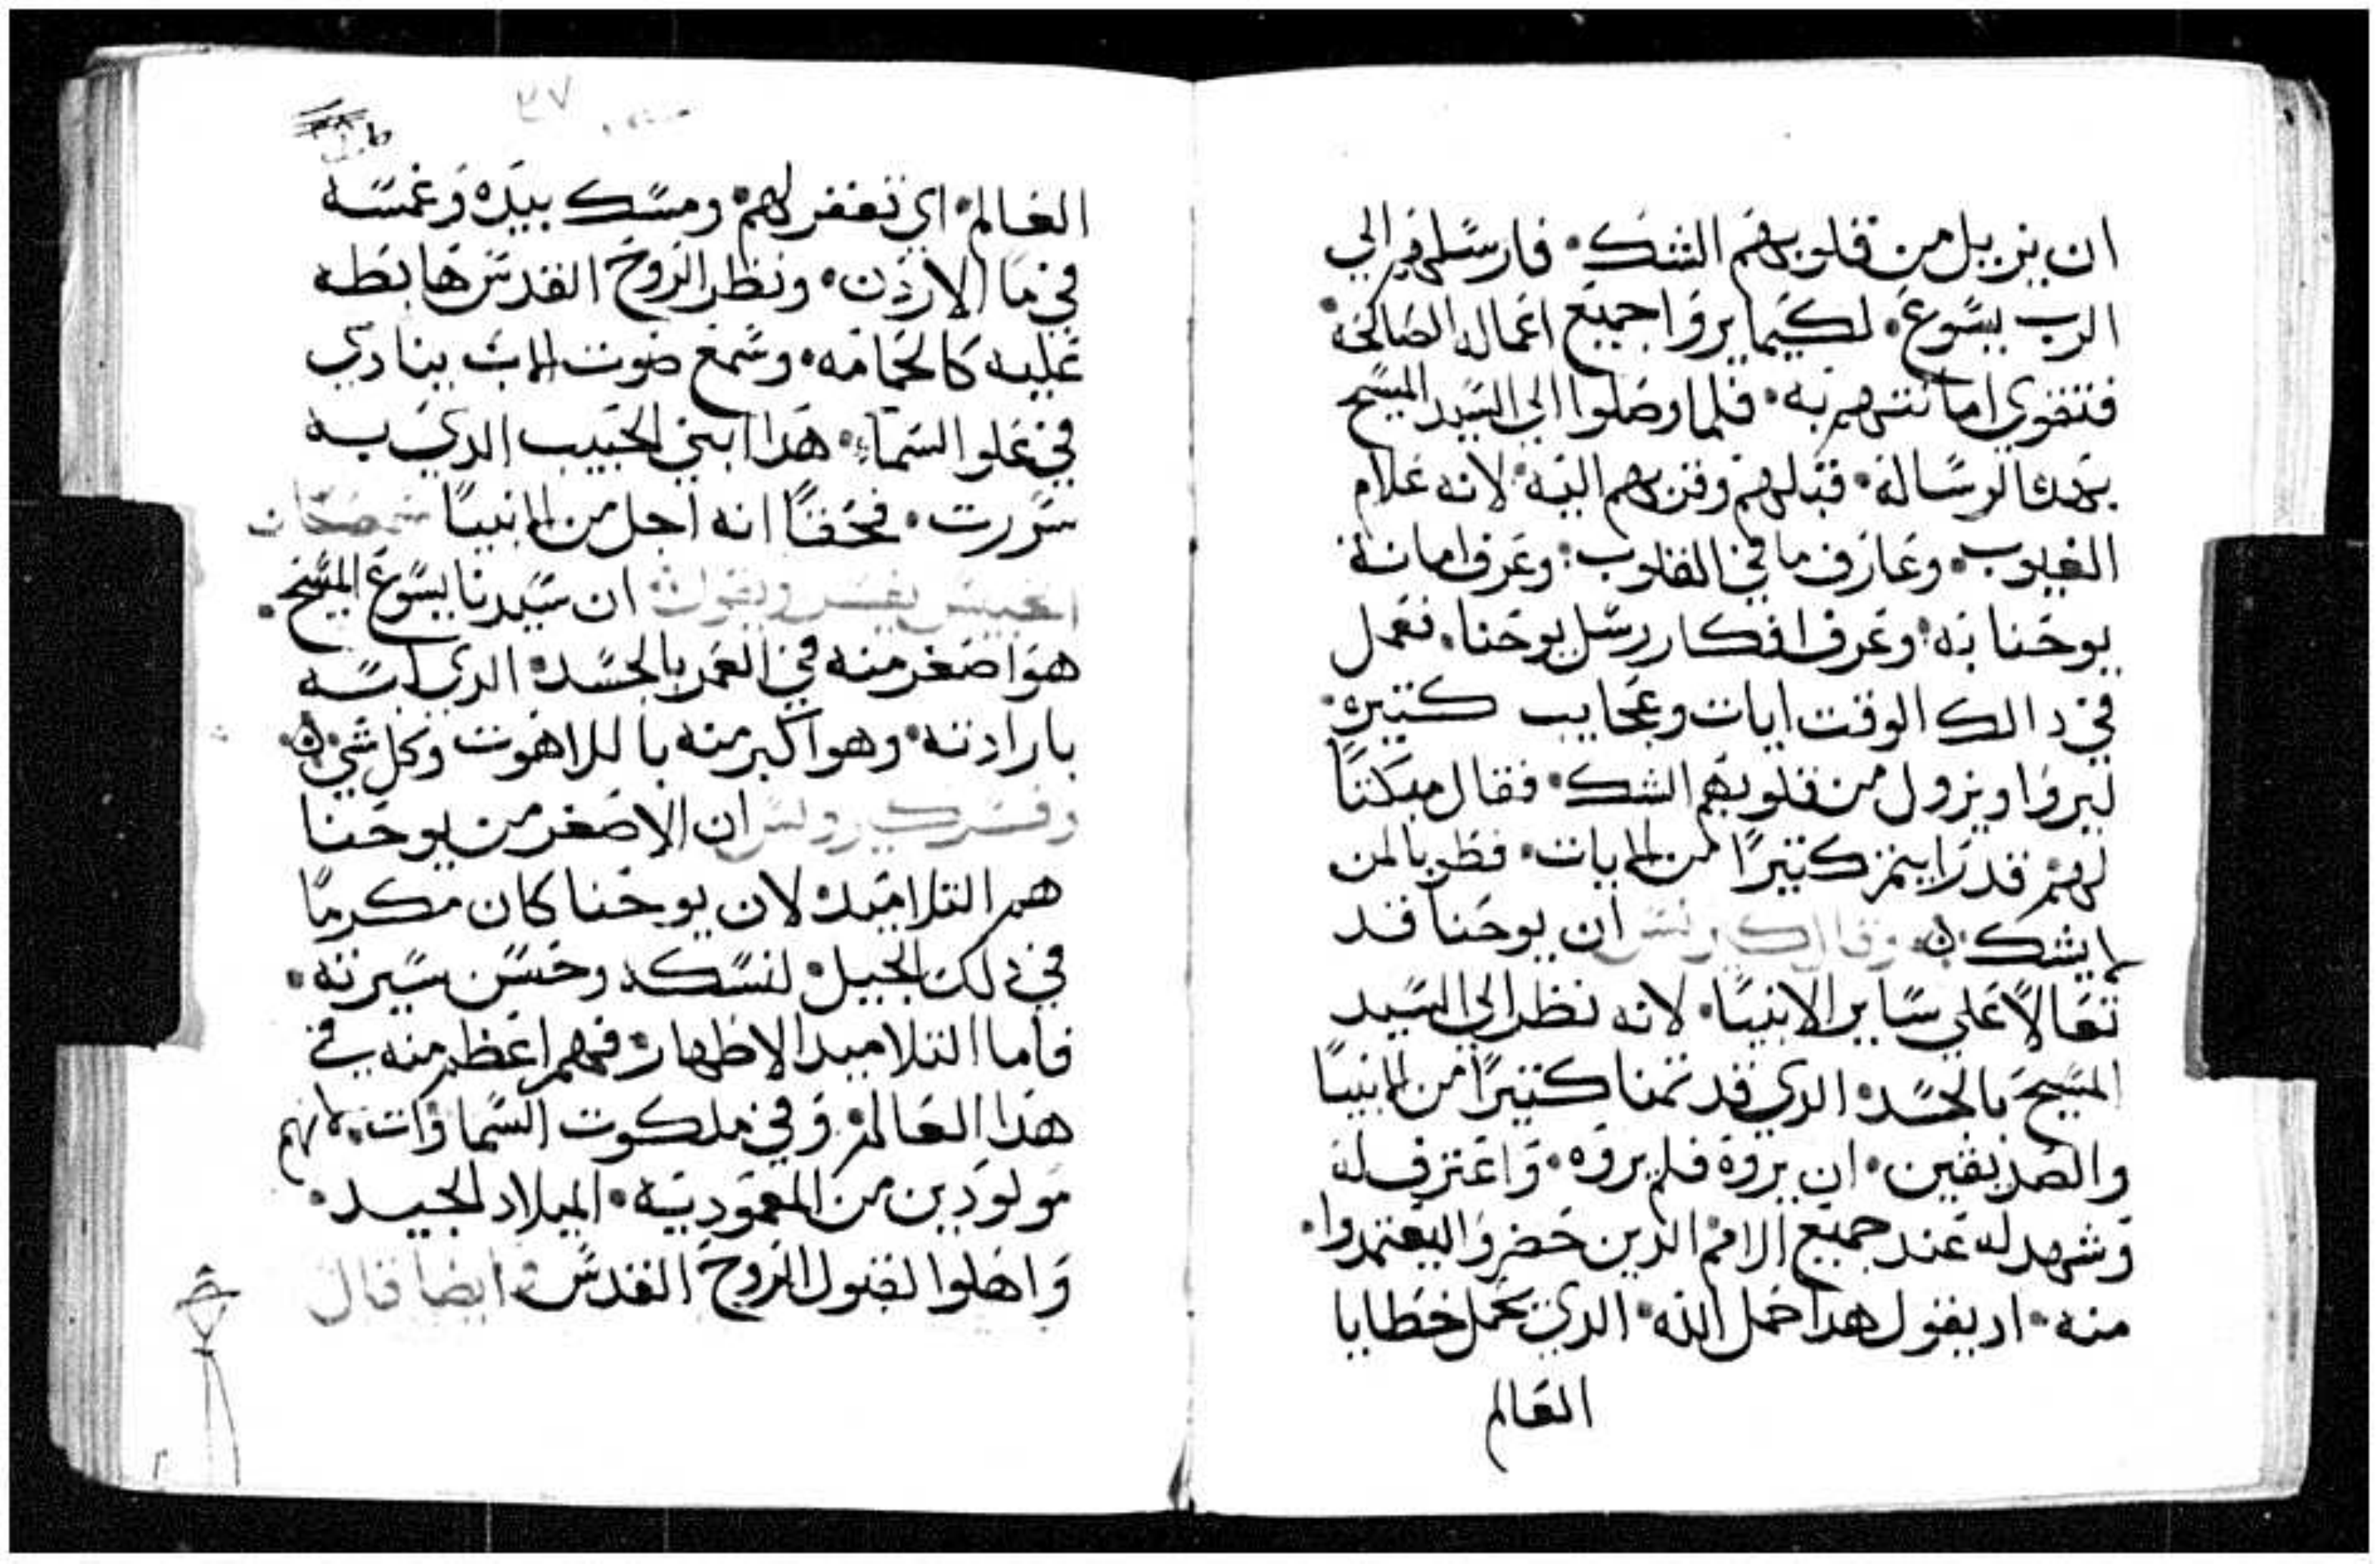 ان يزيل من قلوبهم الشك. فارسلهم الي
الرب يسوع. لكيما يروا جميع اعماله الصالحه.
فتقوي امانتهم به. فلما وصلوا الي السيد المسيح
بهده الرساله. قبلهم وقربهم اليه. لانه علام
الغيوب. وعارف ما في القلوب. وعرف امانة
يوحنا به. وعرف افكار رسل يوحنا. فعمل
في دالك الوقت ايات وعجايب كتيره.
ليروا ويزول من قلوبهم الشك. فقال مبكتاً
لهم قد رايتم كتيراً من الايات. فطوبا لمن
لا يشك بي. وقال كيرلس ان يوحنا قد
تعالاً علي ساير الانبيا. لانه نظر الي السيد
المسيح بالجسد. الدي قد تمنا كتيراً من الانبيا
والصديقين. ان يروه فلم يروه. واعترف له
وشهد له عند جميع الامم الدين حضروا ليعتمدوا.
منه. اد يقول هدا حمل الله. الدي يحمل خطايا
العالم
٣٧
العالم. اي تغفر لهم. ومسك بيده وغمسه
في ما الاردن. ونظر الروح القدس هابطه
عليه كالحمامه. وسمع صوت الاب ينادي
في علو السماء. هدا ابني الحبيب الدي به
سررت. فحقاً انه اجل من الانبيا
يفسر ويقول ان سيدنا يسوع المسيح.
هو اصغر منه في العمر بالجسد. الدي لبسه
بارادته. وهو اكبر منه باللاهوت وكل شي
وفسر كيرولس ان الاصغر من يوحنا
هم التلاميد. لان يوحنا كان مكرماً
في دلك الجيل. لنسكه وحسن سيرته.
فاما التلاميد الاطهار. فهم اعظم منه في
هدا العالم. وفي ملكوت السماوات. لانهم
مولودين من المعموديه. الميلاد الجيد.
واهلوا لقبول الروح القدس. وايضا قال